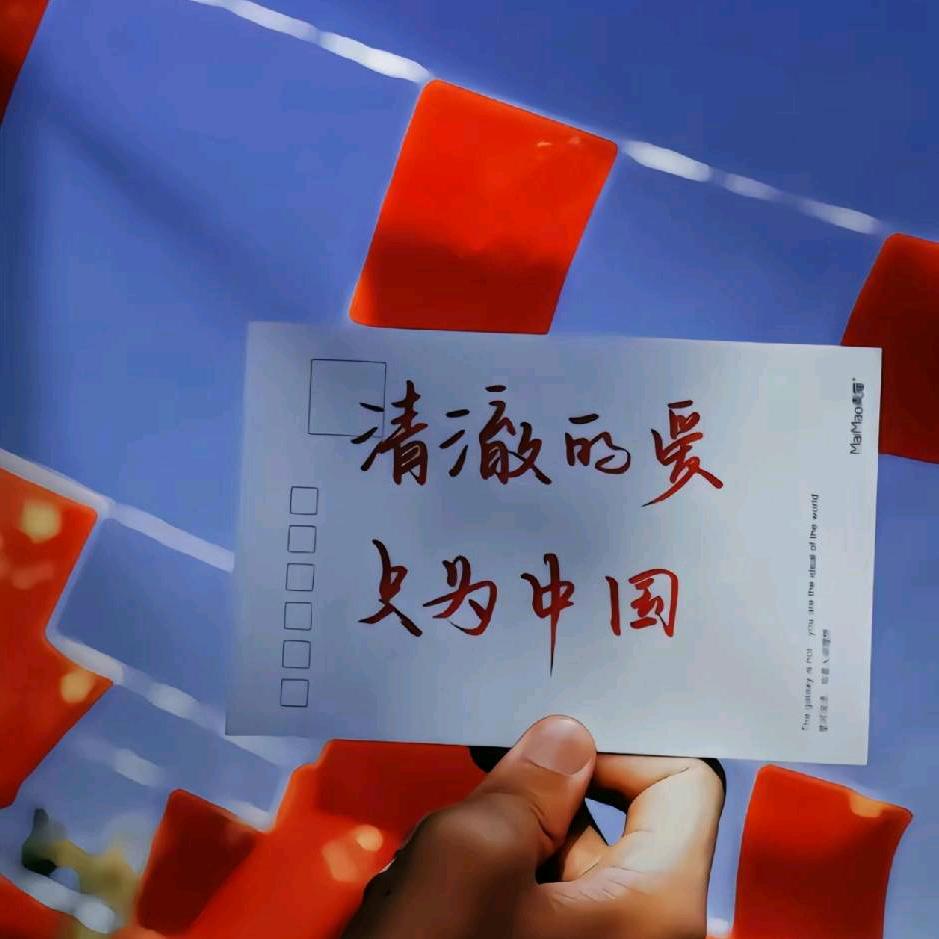 清澈的爱
只为中国
MaiMao
The galaxy is not , you are the ideal of the world